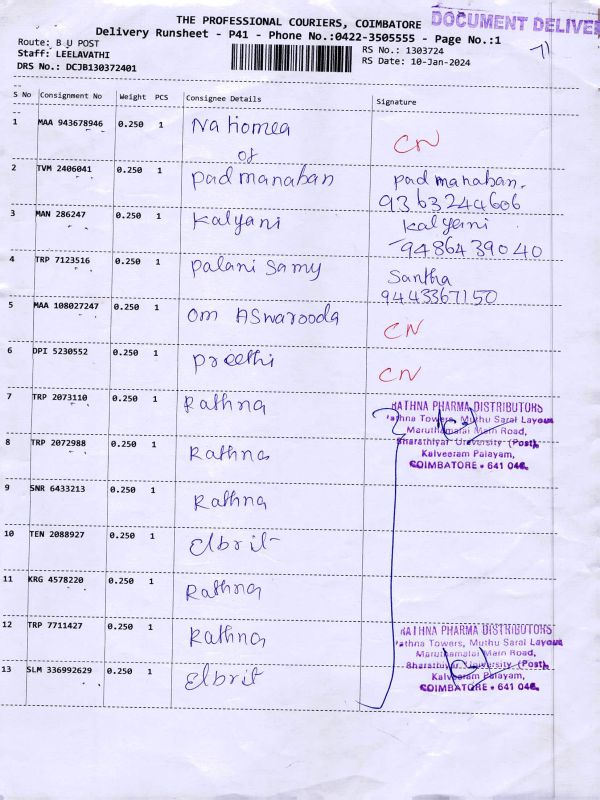 THE PROFESSIONAL COURIERS, COIMBATORE
DOCUMENT DELIVER
Delivery Runsheet - P41 - Phone No.:0422-3505555 - Page No.:1
Route: B U POST
RS No.: 1303724
Staff: LEELAVATHI
RS Date: 10-Jan-2024
DRS No.: DCJB130372401
S No Consignment No Weight PCS Consignee Details Signature
1 MAA 943678946 0.250 1 Na Homea CN
of
2 TVM 2406041 0.250 1 padmanaban padmanaban.
9363244606
3 MAN 286247 0.250 1 Kalyani Kalyani
9486439040
4 TRP 7123516 0.250 1 palani samy Santha
9443367150
5 MAA 108027247 0.250 1 om ASwarooda CN
6 DPI 5230552 0.250 1 preethi CN
7 TRP 2073110 0.250 1 Rathna
RATHNA PHARMA DISTRIBUTORS
Rathna Towers, Muthu Saral Layout
Maruthamalai Main Road,
Bharathiyar University (Post),
Kalveeram Palayam,
COIMBATORE - 641 046.
8 TRP 2072988 0.250 1 Rathna
9 SNR 6433213 0.250 1 Rathna
10 TEN 2088927 0.250 1 Elbrit
11 KRG 4578220 0.250 1 Rathna
12 TRP 7711427 0.250 1 Rathna
RATHNA PHARMA DISTRIBUTORS
Rathna Towers, Muthu Saral Layout
Maruthamalai Main Road,
Bharathiyar University (Post),
Kalveeram Palayam,
COIMBATORE - 641 046.
13 SLM 336992629 0.250 1 Elbrit